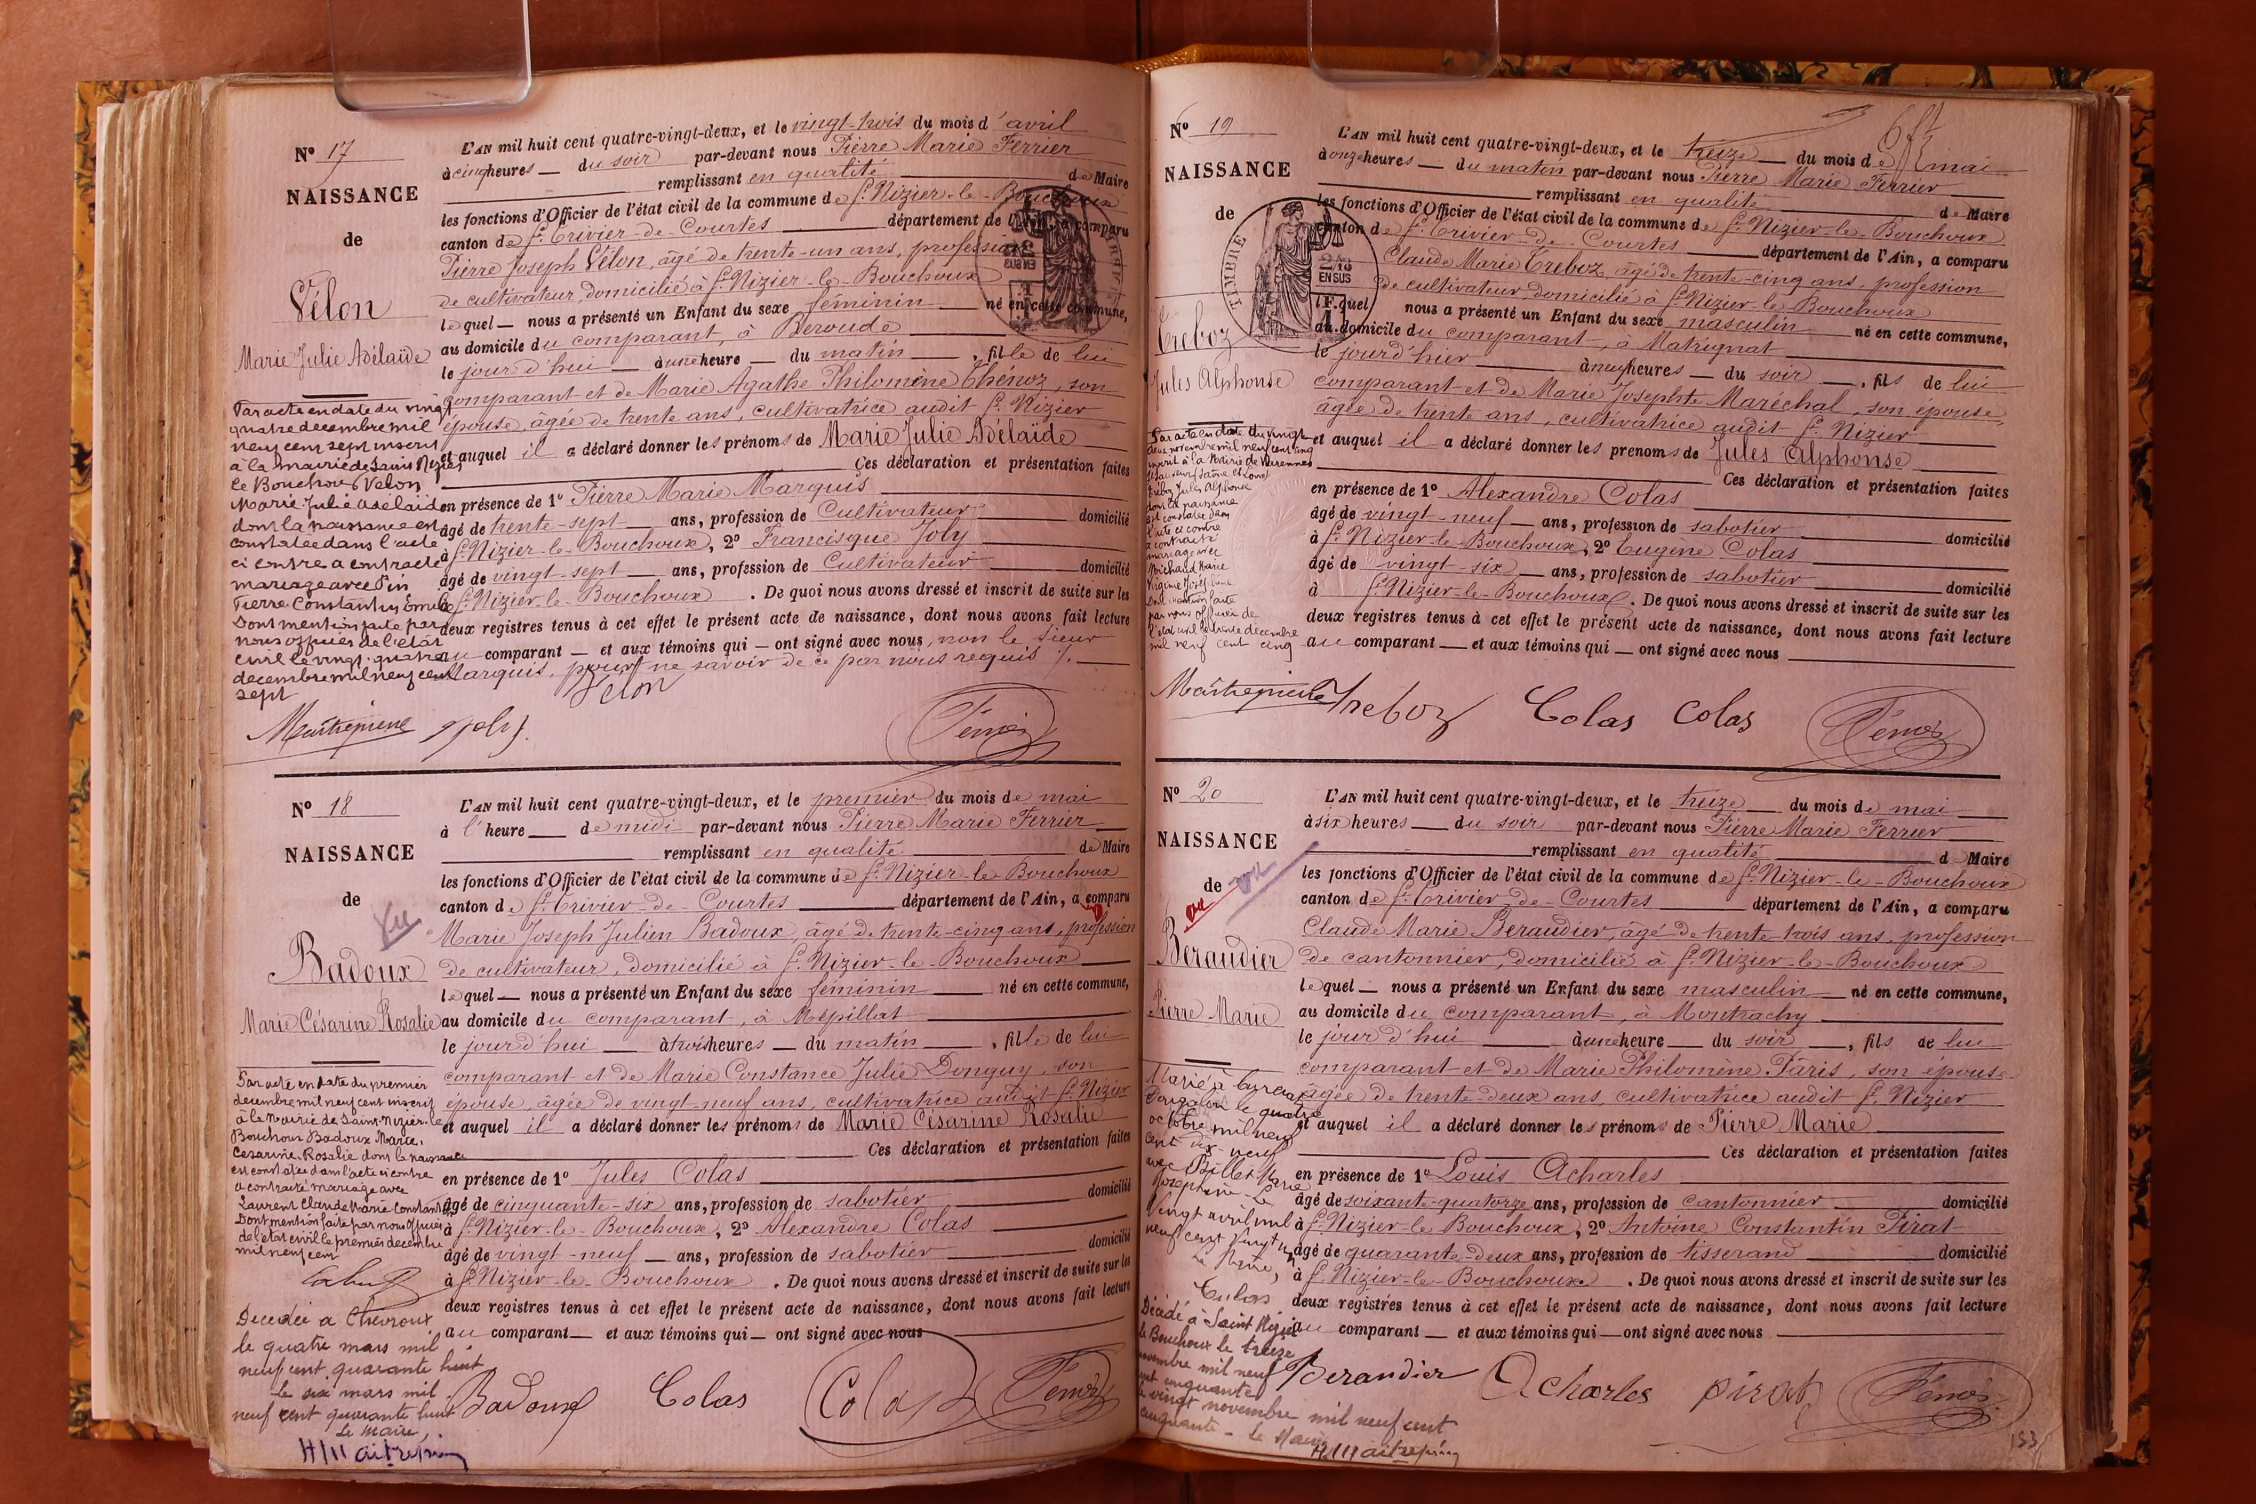 N° 17
NAISSANCE
de
Vélon
Marie Julie Adélaïde
Par acte en date du vingt
quatre decembre mil
neuf cent sept inscrit
à la mairie de Saint Nizier
le Bouchoux Velon
Marie Julie Adelaide
dont la naissance est
constatée dans l'acte
ci contre a contracté
mariage avec Pin
Pierre Constantin Emile
Dont mention faite par
nous officier de l'état
civil le vingt-quatre
decembre mil neuf cent
sept
Maitrepierre
L'AN mil huit cent quatre-vingt-deux, et le vingt-trois du mois d'avril
à cinq heures — du soir par-devant nous Pierre Marie Ferrier
remplissant en qualité de Maire
les fonctions d'Officier de l'état civil de la commune de St Nizier-le-Bouchoux
canton de St Trivier-de-Courtes département de l'Ain, a comparu
Pierre Joseph Vélon, âgé de trente-un ans, profession
de cultivateur, domicilié à St Nizier-le-Bouchoux
lequel — nous a présenté un Enfant du sexe féminin né en cette commune,
au domicile du comparant, à Beroude
le jourd'hui — à une heure — du matin —, fille de lui
comparant et de Marie Agathe Philomène Thénoz, son
épouse, âgée de trente ans, cultivatrice audit St Nizier
et auquel il a déclaré donner les prénoms de Marie Julie Adélaïde
Ces déclaration et présentation faites
en présence de 1° Pierre Marie Marquis
âgé de trente-sept — ans, profession de Cultivateur domicilié
à St Nizier-le-Bouchoux, 2° Francisque Joly
âgé de vingt-sept — ans, profession de Cultivateur domicilié
à St Nizier-le-Bouchoux. De quoi nous avons dressé et inscrit de suite sur les
deux registres tenus à cet effet le présent acte de naissance, dont nous avons fait lecture
au comparant — et aux témoins qui — ont signé avec nous, non le sieur
Marquis, pour ne savoir de ce par nous requis /.
Vélon
Joly
N° 18
NAISSANCE
de
Vu
Badoux
Marie Césarine Rosalie
Par acte en date du premier
decembre mil neuf cent inscrit
à la Mairie de Saint-Nizier-le
Bouchoux Badoux Marie,
Cesarine, Rosalie dont la naissance
est constatée dans l'acte ci contre
a contracté mariage avec
Laurent Claude Marie Constant
Dont mention faite par nous officier
de l'état civil le premier decembre
mil neuf cent
Decedée à Chevroux
le quatre mars mil
neuf cent quarante huit
le six mars mil
neuf cent quarante huit
Le Maire,
H Maitrepierre
L'AN mil huit cent quatre-vingt-deux, et le premier du mois de mai
à l'heure — de midi par-devant nous Pierre Marie Ferrier
remplissant en qualité de Maire
les fonctions d'Officier de l'état civil de la commune de St Nizier-le-Bouchoux
canton de St Trivier-de-Courtes département de l'Ain, a comparu
Marie Joseph Julien Badoux, âgé de trente-cinq ans, profession
de cultivateur, domicilié à St Nizier-le-Bouchoux
lequel — nous a présenté un Enfant du sexe féminin né en cette commune,
au domicile du comparant, à Mépillat
le jourd'hui — à trois heures — du matin —, fille de lui
comparant et de Marie Constance Julie Donguy, son
épouse, âgée de vingt-neuf ans, cultivatrice audit St Nizier
et auquel il a déclaré donner les prénoms de Marie Césarine Rosalie
Ces déclaration et présentation faites
en présence de 1° Jules Colas
âgé de cinquante-six ans, profession de sabotier domicilié
à St Nizier-le-Bouchoux, 2° Alexandre Colas
âgé de vingt-neuf — ans, profession de sabotier domicilié
à St Nizier-le-Bouchoux. De quoi nous avons dressé et inscrit de suite sur les
deux registres tenus à cet effet le présent acte de naissance, dont nous avons fait lecture
au comparant — et aux témoins qui — ont signé avec nous
Badoux Colas Colas
N° 19
NAISSANCE
de
TIMBRE
2/10 EN SUS
Treboz
Jules Alphonse
Par acte en date du vingt
deux novembre mil neuf cent cinq
inscrit à la Mairie de Varennes
St Sauveur (Saône et Loire)
Treboz Jules Alphonse
dont la naissance
est constatée dans
l'acte ci contre
a contracté
mariage avec
Michaud Marie
Dont mention faite
par nous officier de
l'état civil le trente decembre
mil neuf cent cinq
Maitrepierre
L'AN mil huit cent quatre-vingt-deux, et le treize — du mois de mai
à onze heures — du matin par-devant nous Pierre Marie Ferrier
remplissant en qualité de Maire
les fonctions d'Officier de l'état civil de la commune de St Nizier-le-Bouchoux
canton de St Trivier-de-Courtes département de l'Ain, a comparu
Claude Marie Treboz, âgé de trente-cinq ans, profession
de cultivateur, domicilié à St Nizier-le-Bouchoux
lequel nous a présenté un Enfant du sexe masculin né en cette commune,
au domicile du comparant, à Matrignat
le jourd'hier à neuf heures — du soir —, fils de lui
comparant et de Marie Josephte Maréchal, son épouse,
âgée de trente ans, cultivatrice audit St Nizier
et auquel il a déclaré donner les prénoms de Jules Alphonse
Ces déclaration et présentation faites
en présence de 1° Alexandre Colas
âgé de vingt-neuf — ans, profession de sabotier domicilié
à St Nizier-le-Bouchoux, 2° Eugène Colas
âgé de vingt-six — ans, profession de sabotier domicilié
à St Nizier-le-Bouchoux. De quoi nous avons dressé et inscrit de suite sur les
deux registres tenus à cet effet le présent acte de naissance, dont nous avons fait lecture
au comparant — et aux témoins qui — ont signé avec nous
Treboz Colas Colas
N° 20
NAISSANCE
de
Vu
Beraudier
Pierre Marie
Marié à
le quatre
octobre mil neuf
cent dix-neuf
avec Billet Marie
Josephine - Le
Vingt avril mil
neuf cent vingt
Le Maire,
Colas
Décédé à Saint Nizier
le Bouchoux le treize
novembre mil neuf
cent cinquante
le vingt novembre mil neuf cent
cinquante - Le Maire
H Maitrepierre
L'AN mil huit cent quatre-vingt-deux, et le treize — du mois de mai
à six heures — du soir par-devant nous Pierre Marie Ferrier
remplissant en qualité de Maire
les fonctions d'Officier de l'état civil de la commune de St Nizier-le-Bouchoux
canton de St Trivier-de-Courtes département de l'Ain, a comparu
Claude Marie Beraudier, âgé de trente-trois ans, profession
de cantonnier, domicilié à St Nizier-le-Bouchoux
lequel — nous a présenté un Enfant du sexe masculin — né en cette commune,
au domicile du comparant, à Montrachy
le jourd'hui à une heure — du soir —, fils de lui
comparant et de Marie Philomène Pâris, son épouse
âgée de trente-deux ans, cultivatrice audit St Nizier
et auquel il a déclaré donner les prénoms de Pierre Marie
Ces déclaration et présentation faites
en présence de 1° Louis Acharles
âgé de soixant-quatorze ans, profession de cantonnier domicilié
à St Nizier-le-Bouchoux, 2° Antoine Constantin Pirat
âgé de quarante-deux ans, profession de tisserand domicilié
à St Nizier-le-Bouchoux. De quoi nous avons dressé et inscrit de suite sur les
deux registres tenus à cet effet le présent acte de naissance, dont nous avons fait lecture
au comparant — et aux témoins qui — ont signé avec nous
Beraudier Acharles pirat